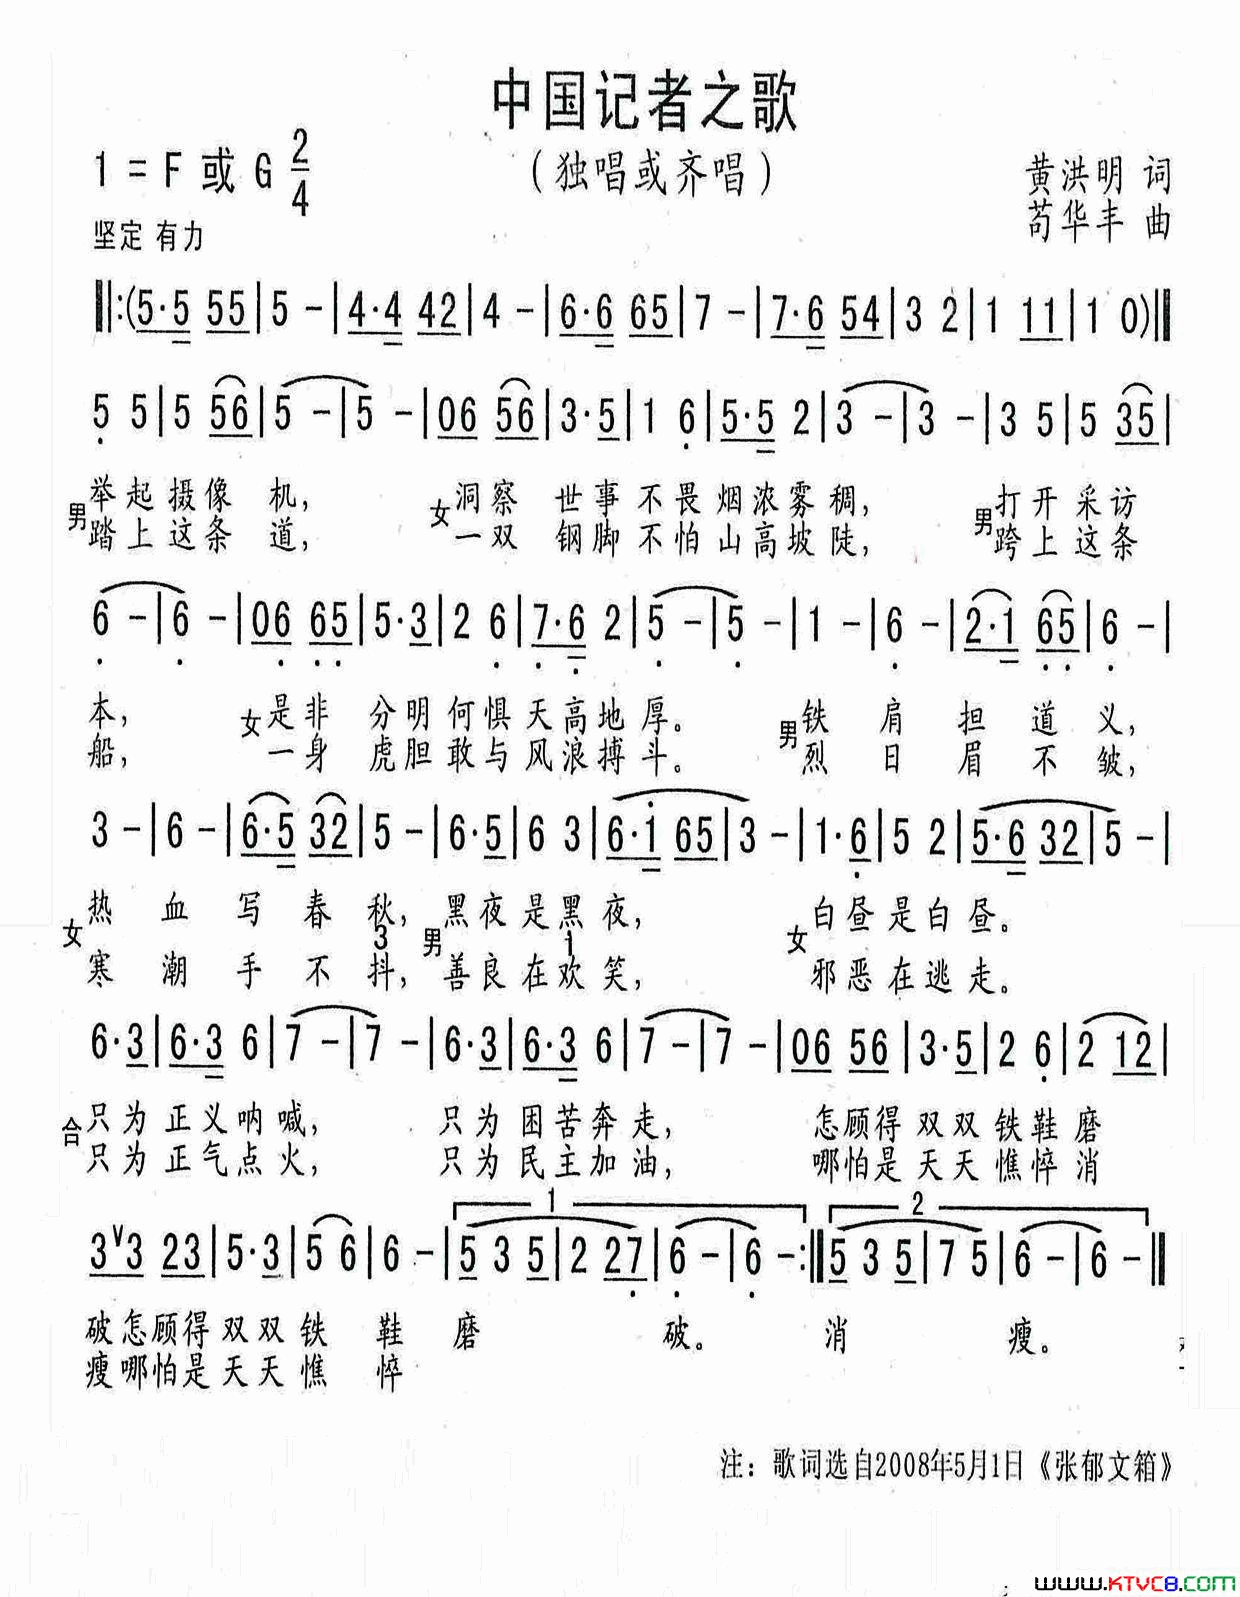 中国记者之歌
1 = F 或 G 2/4
（独唱或齐唱）
黄洪明 词
坚定 有力
苟华丰 曲
‖:(5·5 55|5 -|4·4 42|4 -|6·6 65|7 -|7·6 54|3 2|1 11|1 0)‖
5 5|5 56|5 -|5 -|06 56|3·5|1 6|5·5 2|3 -|3 -|3 5|5 35|
男 举起摄像 机， 女 洞察 世事不畏烟浓雾稠， 男 打开采访
踏上这条 道， 一双 钢脚不怕山高坡陡， 跨上这条
6 -|6 -|06 65|5·3|2 6|7·6 2|5 -|5 -|1 -|6 -|2·1 65|6 -|
本， 女 是非 分明何惧天高地厚。 男 铁 肩 担 道 义，
船， 一身 虎胆敢与风浪搏斗。 烈 日 眉 不 皱，
3 -|6 -|6·5 32|5 -|6·5|6 3|6·1 65|3 -|1·6|5 2|5·6 32|5 -|
女 热 血 写 春 秋， 男 黑夜是黑夜， 女 白昼是白昼。
3 1
寒 潮 手 不 抖， 善良在欢笑， 邪恶在逃走。
6·3|6·3 6|7 -|7 -|6·3|6·3 6|7 -|7 -|06 56|3·5|2 6|2 12|
合 只为正义呐喊， 只为困苦奔走， 怎顾得双双铁鞋磨
只为正气点火， 只为民主加油， 哪怕是天天憔悴消
1 2
3∨3 23|5·3|5 6|6 -|5 3 5|2 27|6 -|6 -:‖5 3 5|7 5|6 -|6 -‖
破怎顾得双双铁 鞋 磨 破。 消 瘦。
瘦哪怕是天天憔 悴
注：歌词选自2008年5月1日《张郁文箱》
www.KTVC8.com